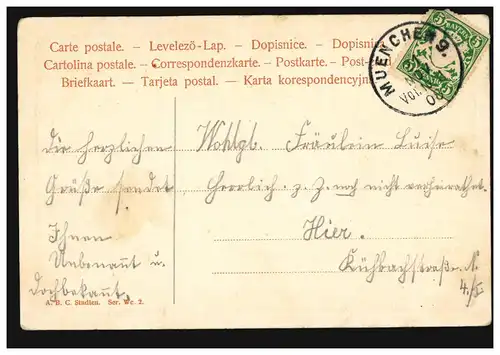 Carte postale. – Levelező-Lap. – Dopisnice. – Dopisnic
Cartolina postale. – Correspondenzkarte. – Postkarte. – Post-
Briefkaart. – Tarjeta postal. – Karta korespondencyjn
MUENCHEN 9.
BAYERN
5 5
PFENNIG
die herzlichen
Grüße sendet
Ihnen
Unbenannt u.
doch bekannt.
Wohlgb. Fräulein Luise
Herrlich z. Z. noch nicht verheirathet.
Hier.
Kühbachstraße N.
A. B. C. Studien. Ser. We. 2.